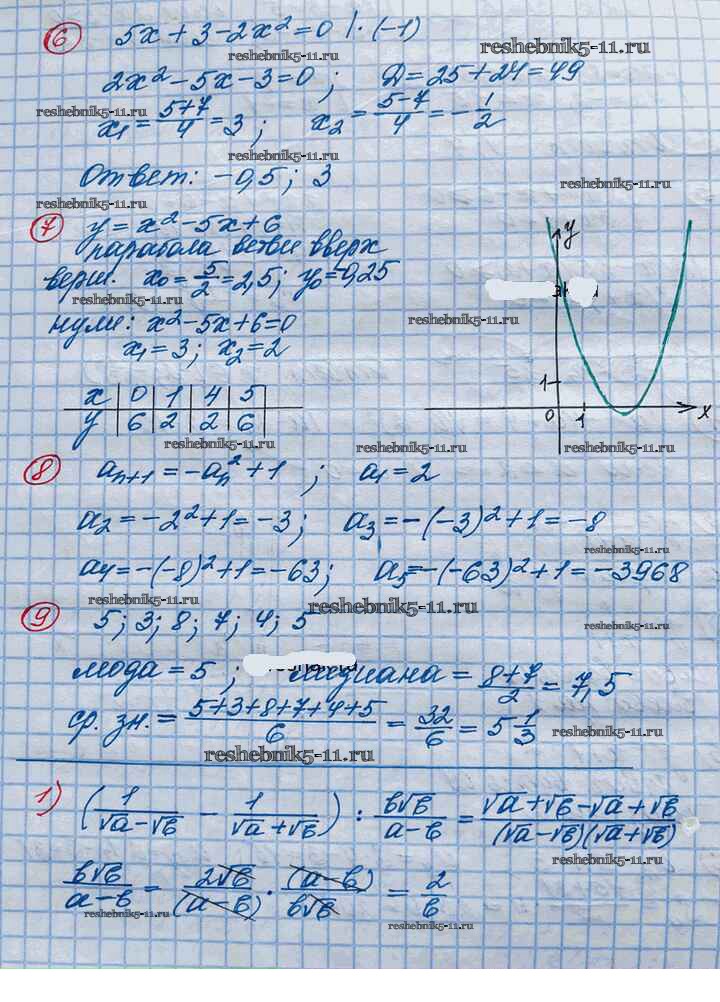 6 5x + 3 - 2x² = 0 | · (-1)
reshebnik5-11.ru
2x² - 5x - 3 = 0 ; D = 25 + 24 = 49
reshebnik5-11.ru
x₁ = (5+7)/4 = 3 ; x₂ = (5-7)/4 = -1/2
reshebnik5-11.ru
Ответ: -0,5 ; 3
reshebnik5-11.ru
7 y = x² - 5x + 6
парабола ветви вверх
верш. x₀ = 5/2 = 2,5 ; y₀ = -0,25
reshebnik5-11.ru
reshebnik5-11.ru
нули: x² - 5x + 6 = 0
x₁ = 3 ; x₂ = 2
x | 0 | 1 | 4 | 5
y | 6 | 2 | 2 | 6
reshebnik5-11.ru
y
1
0 1 x
reshebnik5-11.ru
reshebnik5-11.ru
8 aₙ₊₁ = -aₙ² + 1 ; a₁ = 2
a₂ = -2² + 1 = -3 ; a₃ = -(-3)² + 1 = -8
reshebnik5-11.ru
a₄ = -(-8)² + 1 = -63 ; a₅ = -(-63)² + 1 = -3968
reshebnik5-11.ru
reshebnik5-11.ru
9 5 ; 3 ; 8 ; 7 ; 4 ; 5
reshebnik5-11.ru
мода = 5 ; медиана = (8+7)/2 = 7,5
ср. зн. = (5+3+8+7+4+5)/6 = 32/6 = 5 1/3
reshebnik5-11.ru
reshebnik5-11.ru
1) (1/(√a - √b) - 1/(√a + √b)) : b√b/(a-b) = (√a + √b - √a + √b)/((√a - √b)(√a + √b)) :
reshebnik5-11.ru
b√b/(a-b) = 2√b/(a-b) · (a-b)/(b√b) = 2/b
reshebnik5-11.ru
reshebnik5-11.ru